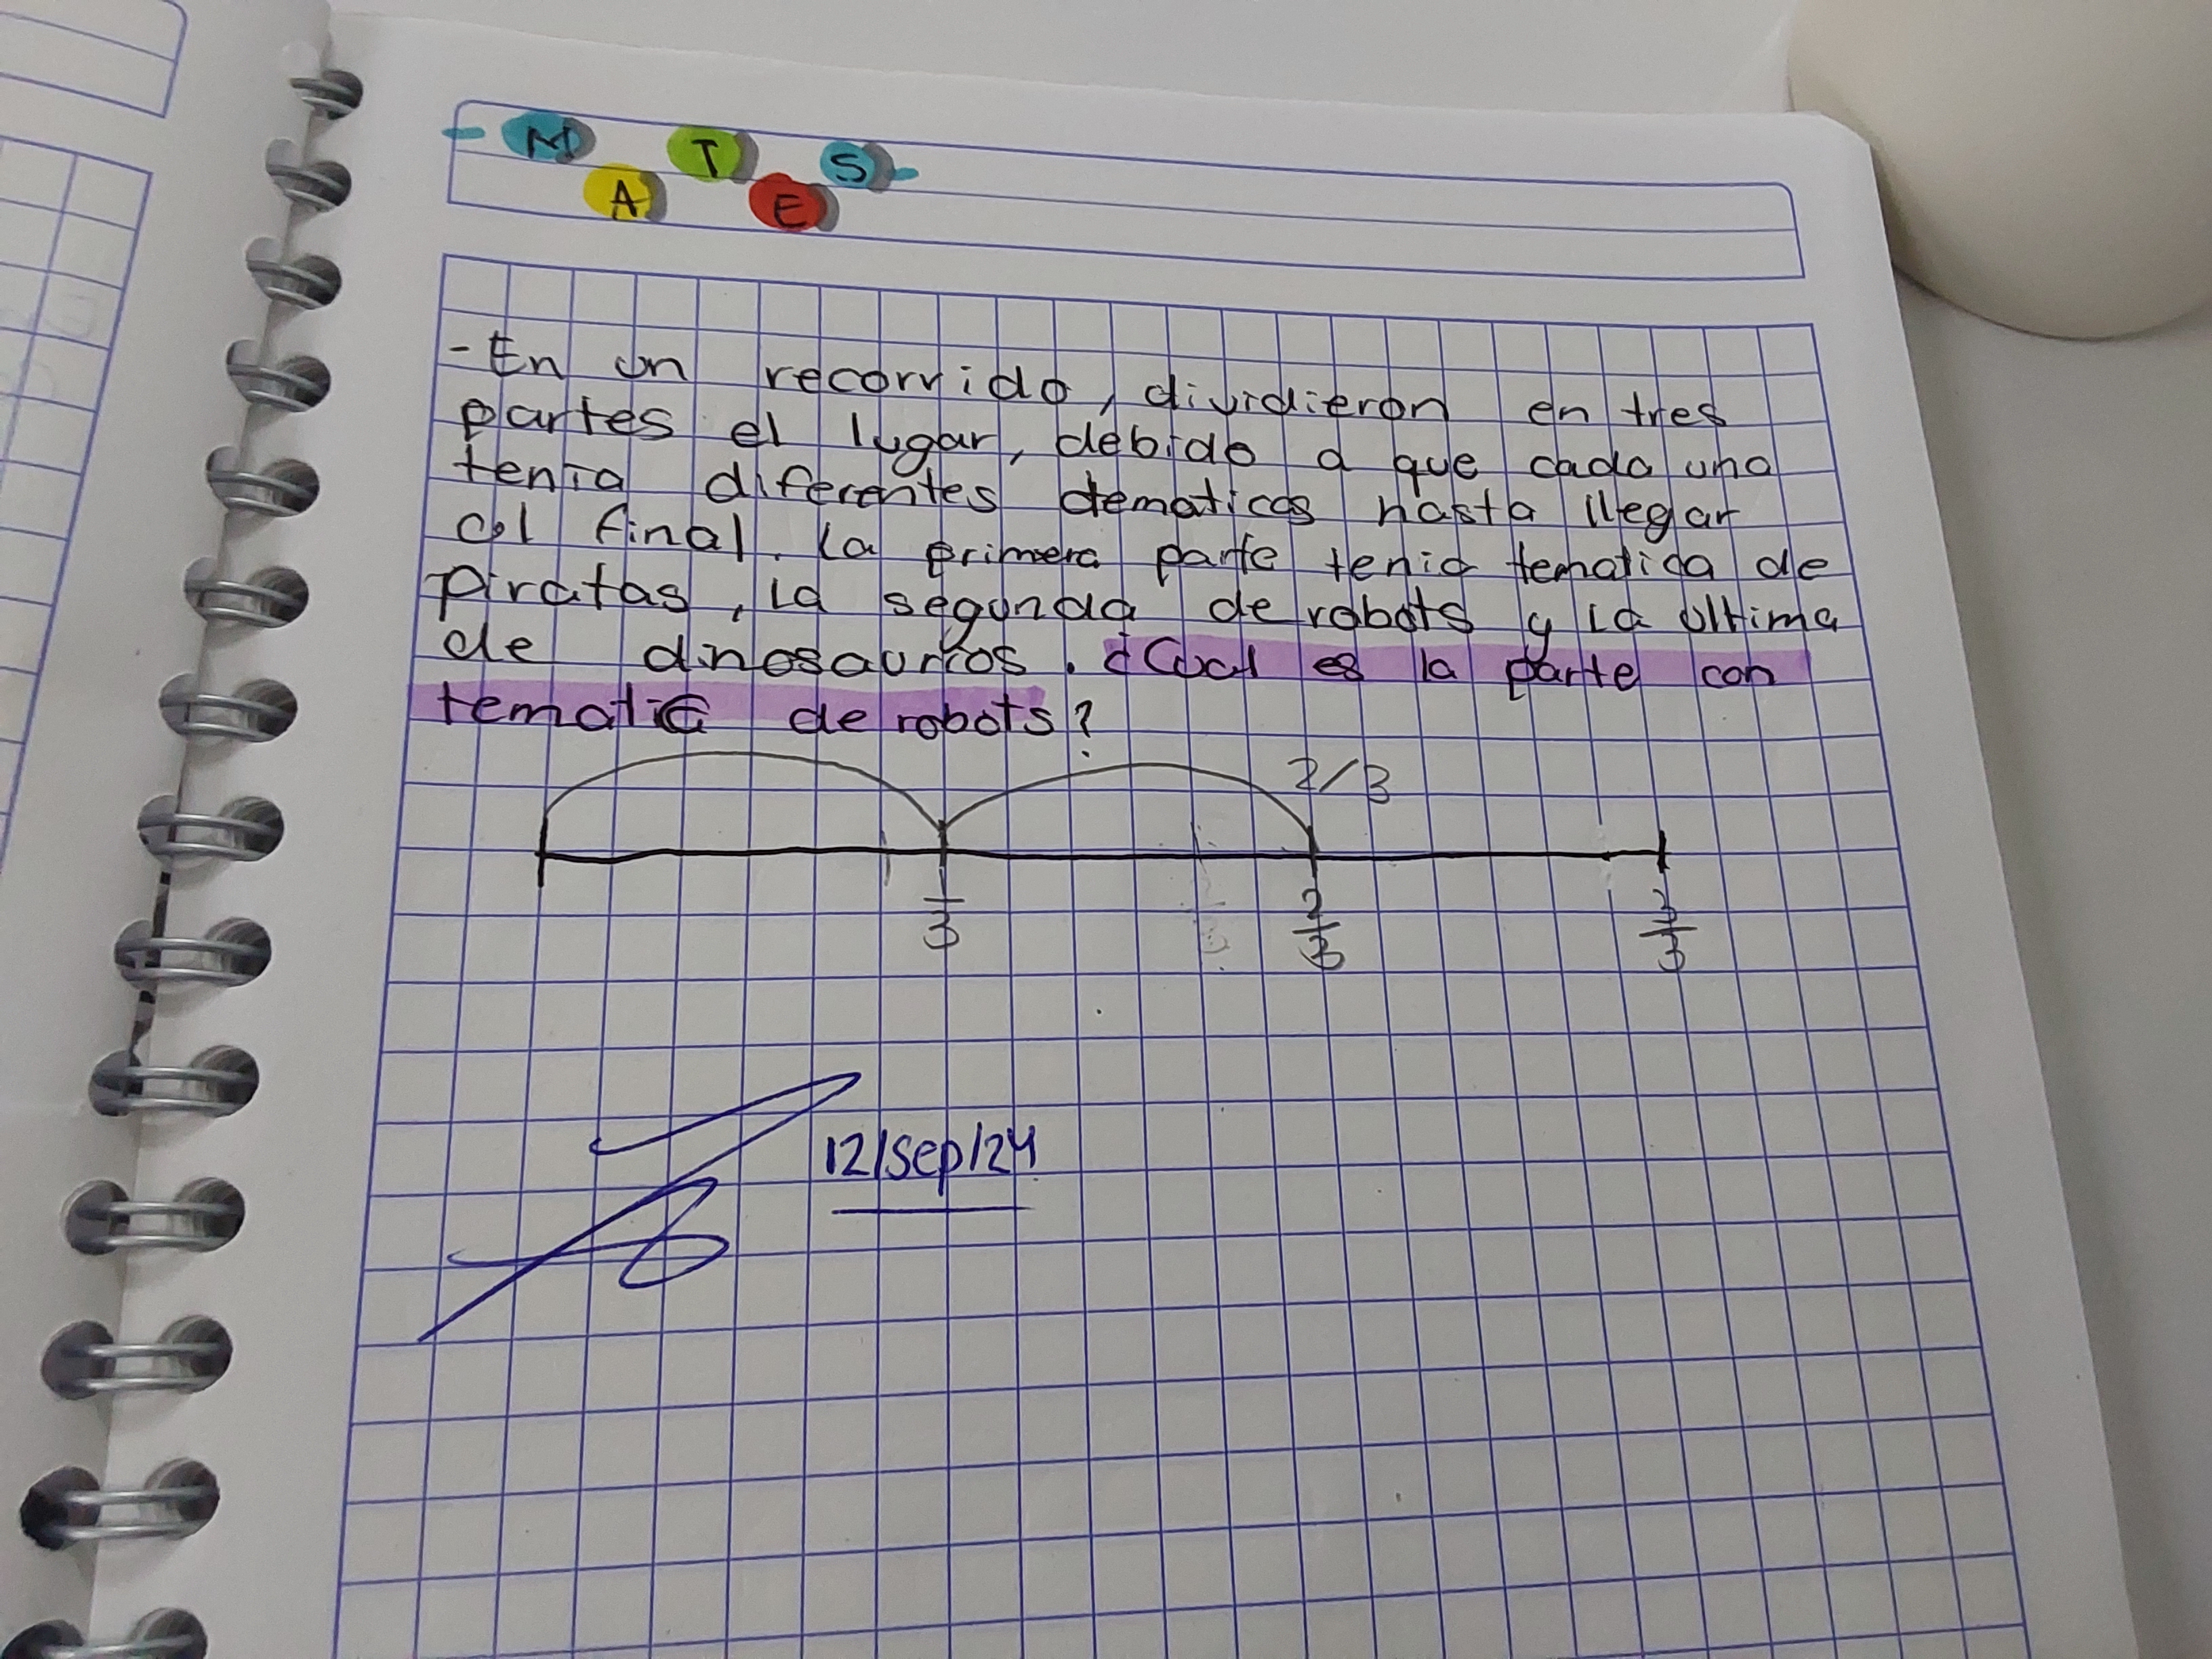 MATES
- En un recorrido, dividieron en tres
partes el lugar, debido a que cada una
tenia diferentes dematicas hasta llegar
al final. La primera parte tenia tematica de
piratas, la segunda de robots y la ultima
de dinosaurios. ¿Cual es la parte con
tematica de robots?
2/3
1/3 2/3 3/3
12/sep/24